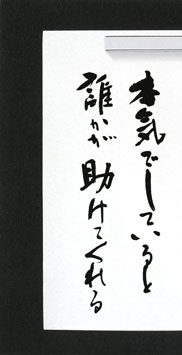 本気でしていると
誰かが助けてくれる